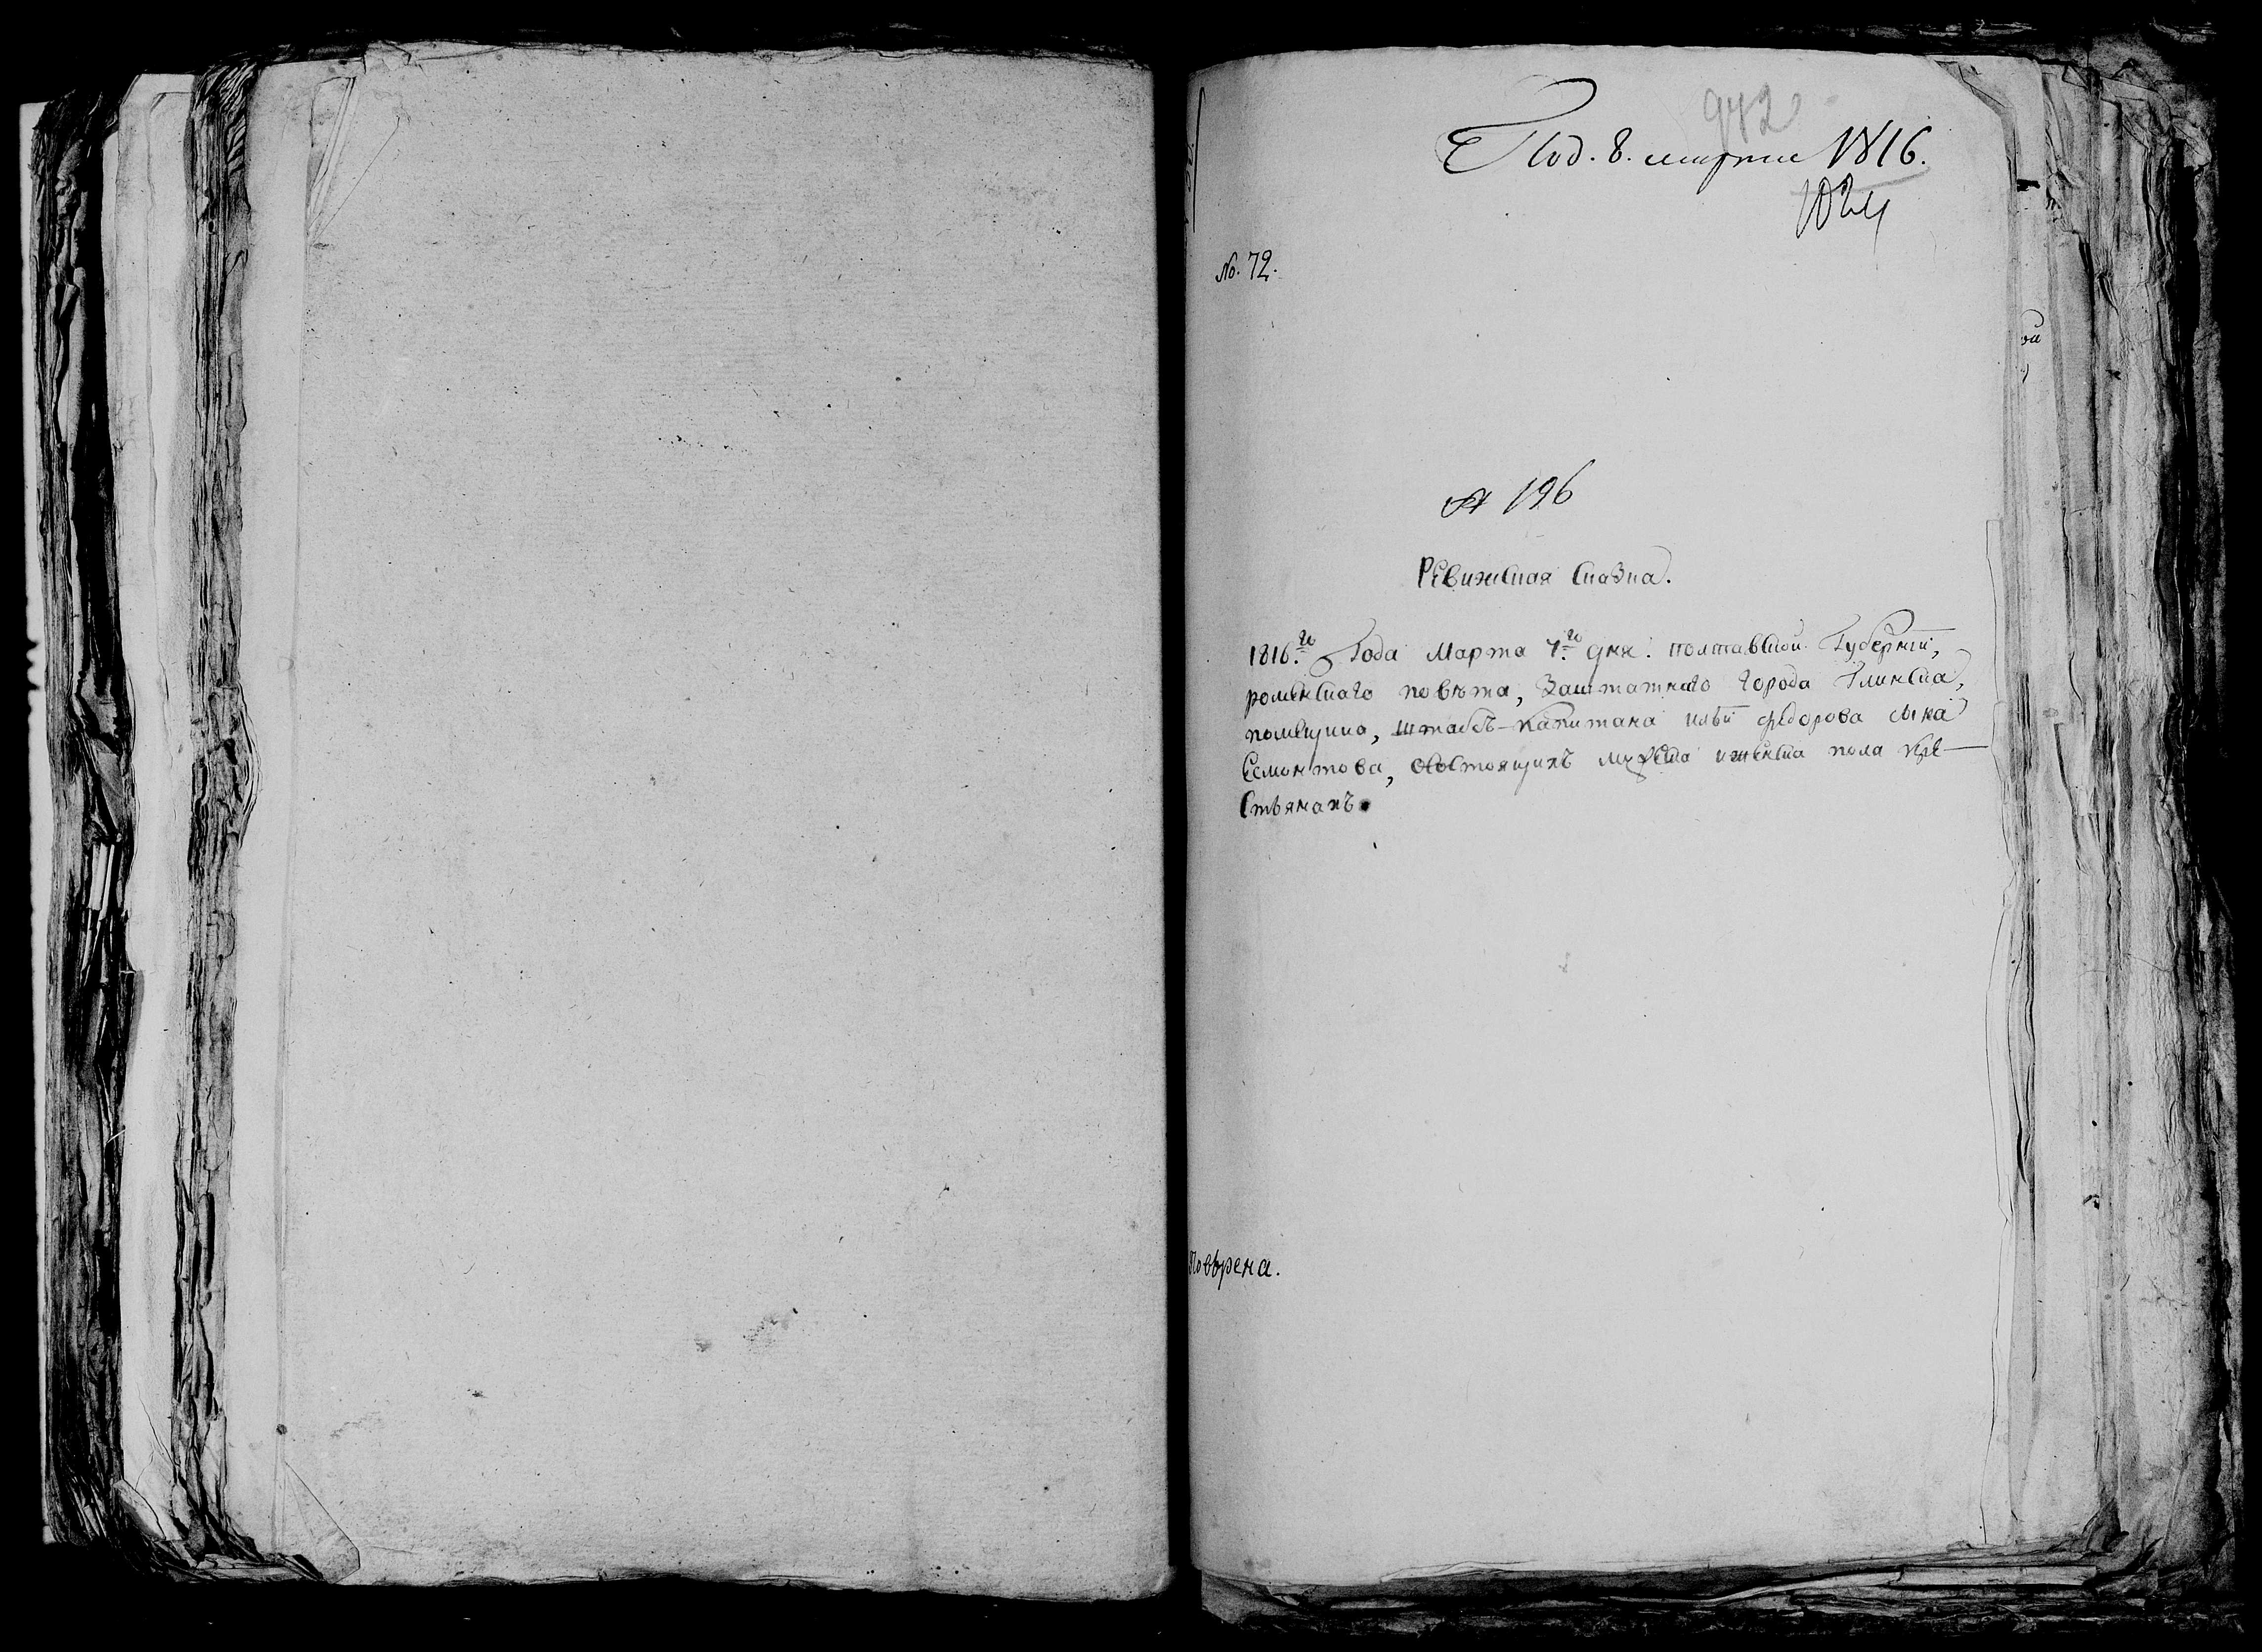 942
Под. 8. марта 1816.
1024
No. 72.
№ 196
Ревижская Сказка.
1816.го Года Марта 7.го дня. полтавской Губернїи,
роменскаго повѣта, Заштатнаго города Глинска,
помещика, штабсъ-капитана Ильи федорова сына
Селионтова, состоящихъ мужеска и женска пола кре-
стьянахъ.
Повѣрена.